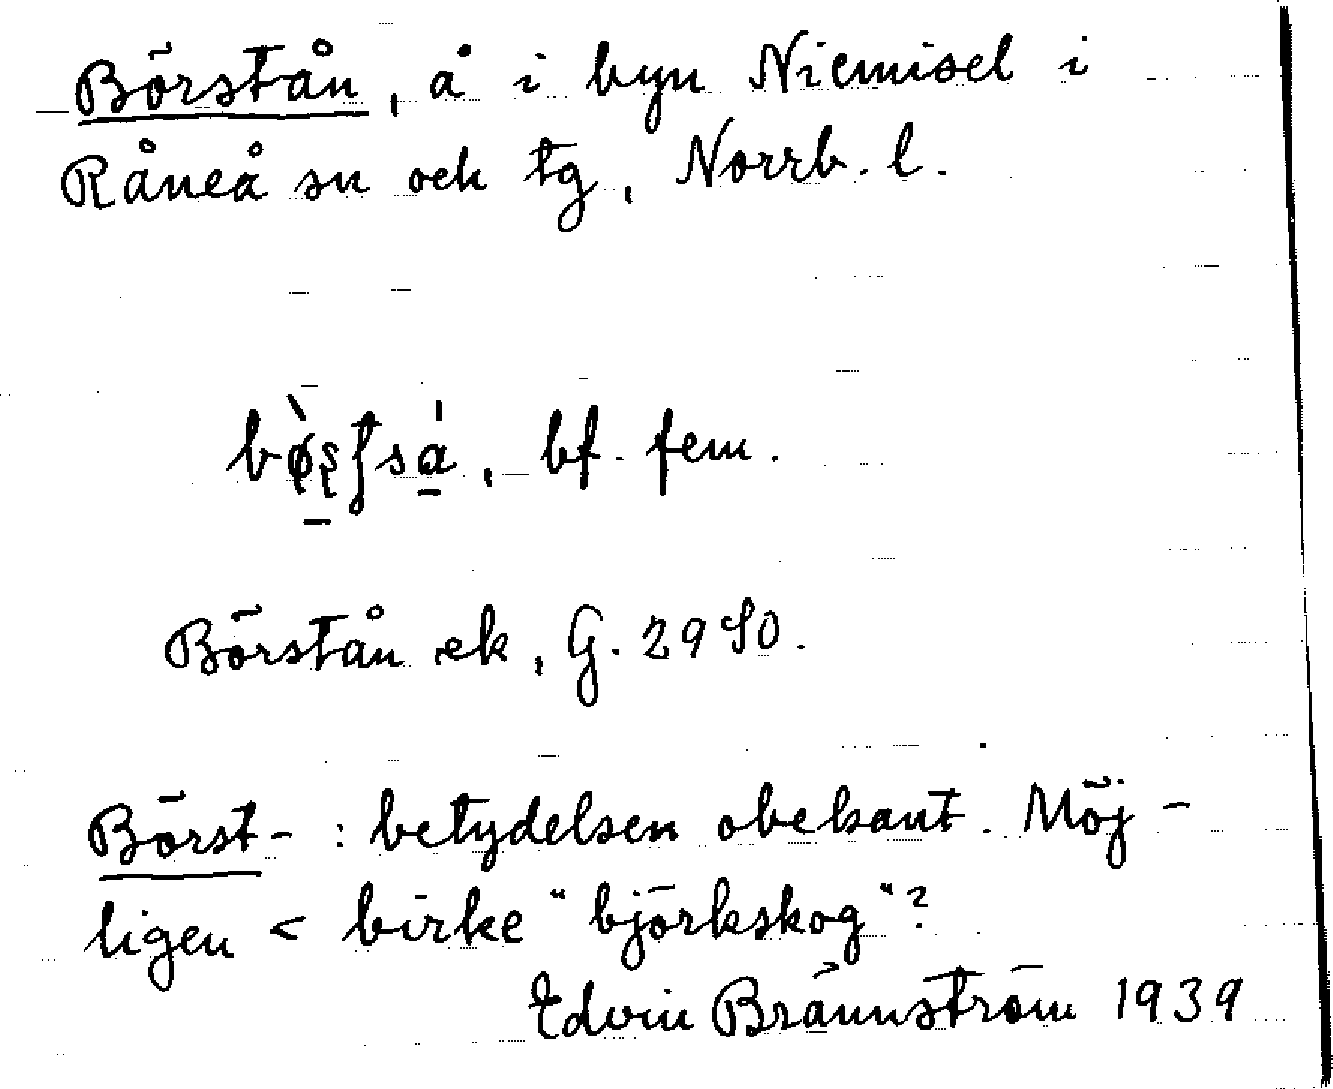 Börstån, å i byn Niemisel i
Råneå sn och tg, Norrb. l.
bf. fem.
Börstån ek, G. 2990.
Börst- : betydelsen obekant. Möj-
ligen < birke "björkskog"?
Edvin Brännström 1939